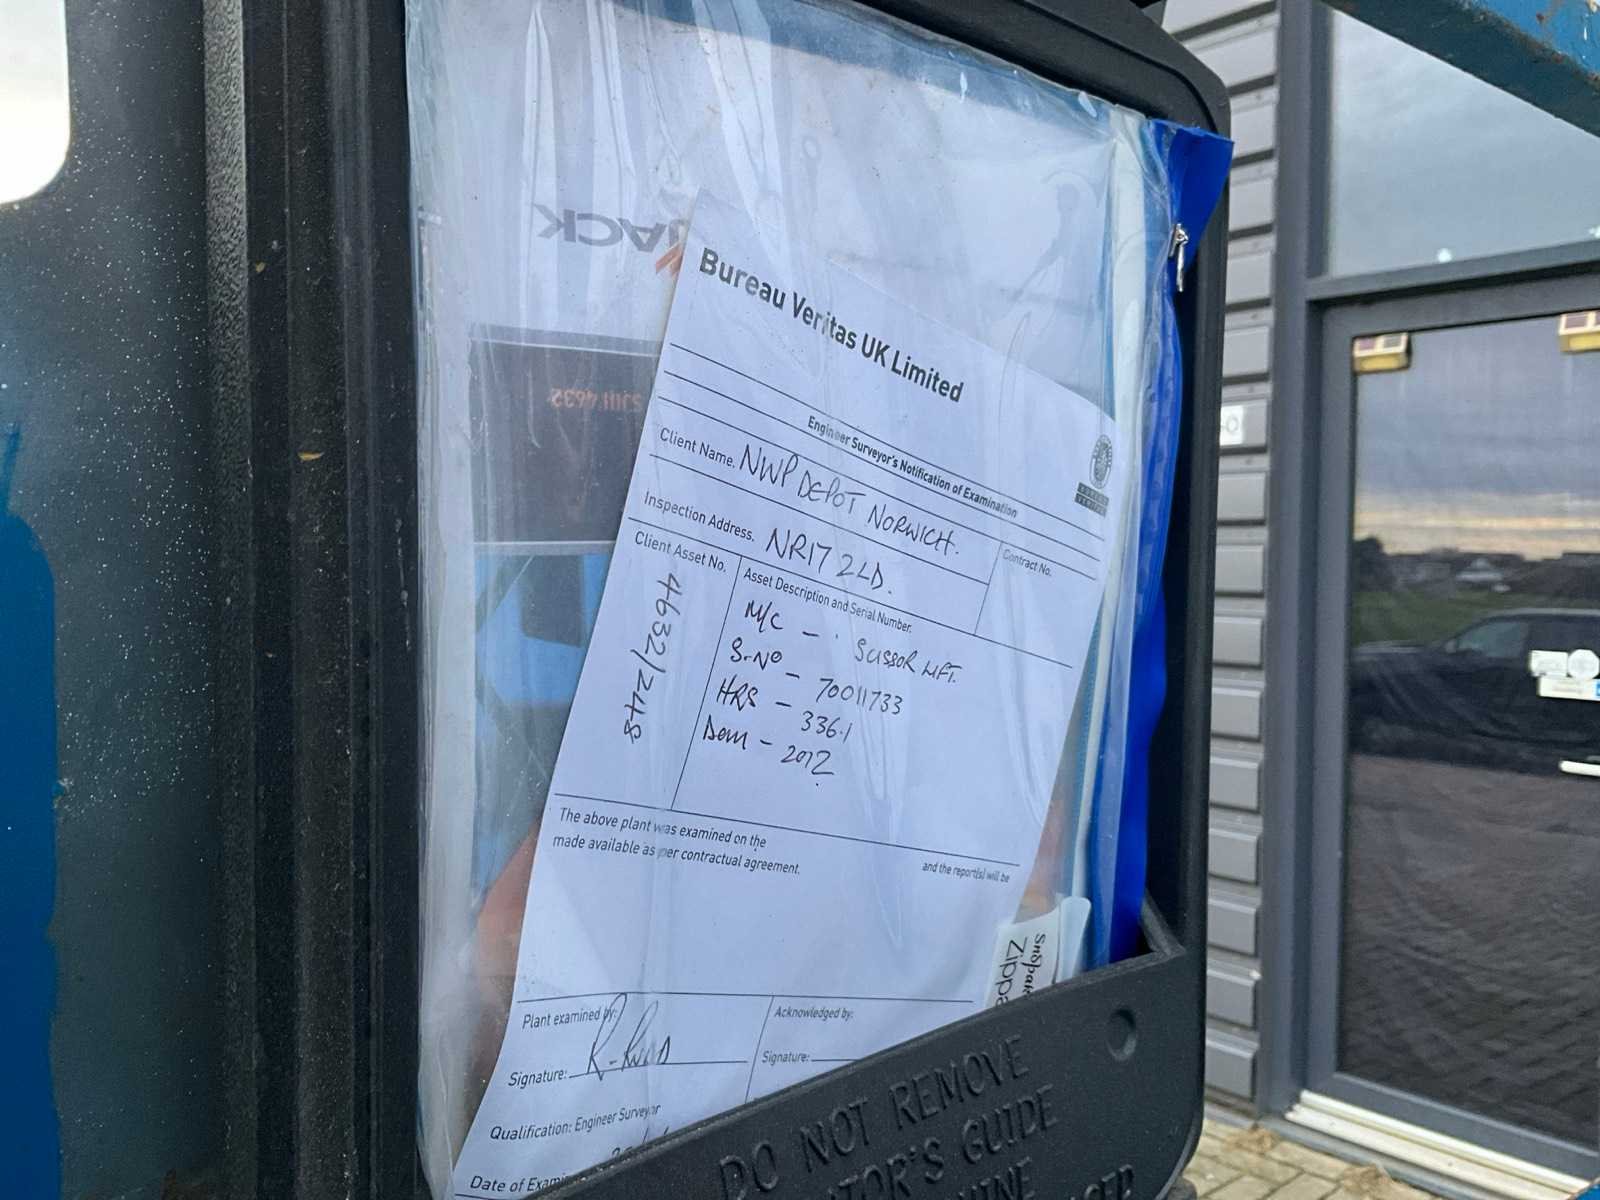 JACK
SJIII 4632
Bureau Veritas UK Limited
Engineer Surveyor's Notification of Examination
BUREAU
VERITAS
Client Name. NWP DEPOT NORWICH.
Contract No.
Inspection Address. NR17 2LD.
Client Asset No.
4632/248
Asset Description and Serial Number.
M/C - SCISSOR LIFT.
S.NO - 70011733
HRS - 336.1
Dom - 2012
The above plant was examined on the and the report(s) will be
made available as per contractual agreement.
Plant examined by:
Acknowledged by:
Signature:
Signature:
Qualification: Engineer Surveyor
Date of
Snopake
DO NOT REMOVE
GUIDE